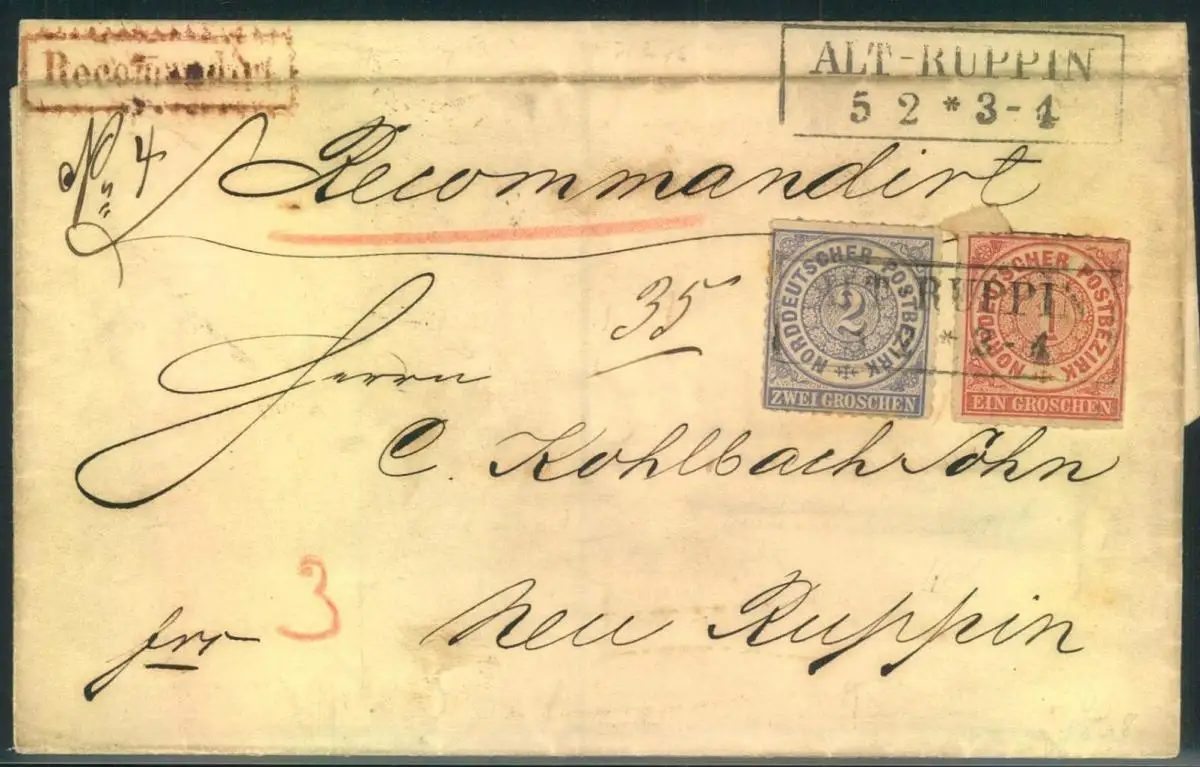 Recomandirt
ALT-RUPPIN
5 2 * 3-4
No. 4
Recommandirt
35
NORDDEUTSCHER POSTBEZIRK
2
ZWEI GROSCHEN
NORDDEUTSCHER POSTBEZIRK
1
EIN GROSCHEN
RUPPIN
* 3-4
Herrn
C. Kohlbach Sohn
3
Neu Ruppin